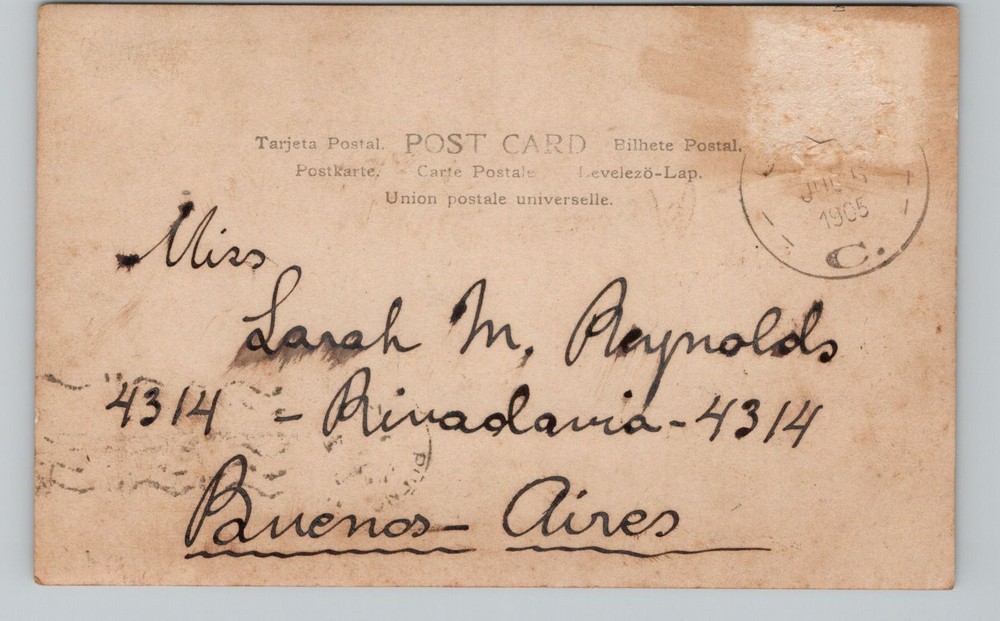 Tarjeta Postal. POST CARD Bilhete Postal.
Postkarte. Carte Postale Levelezö-Lap.
Union postale universelle.
1905
C.
Miss
Sarah M. Reynolds
4314 - Rivadavia - 4314
Buenos - Aires